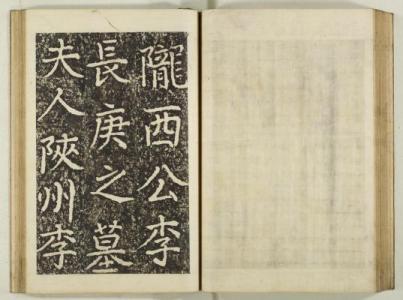 隴西公李
長庚之墓
夫人陝州李